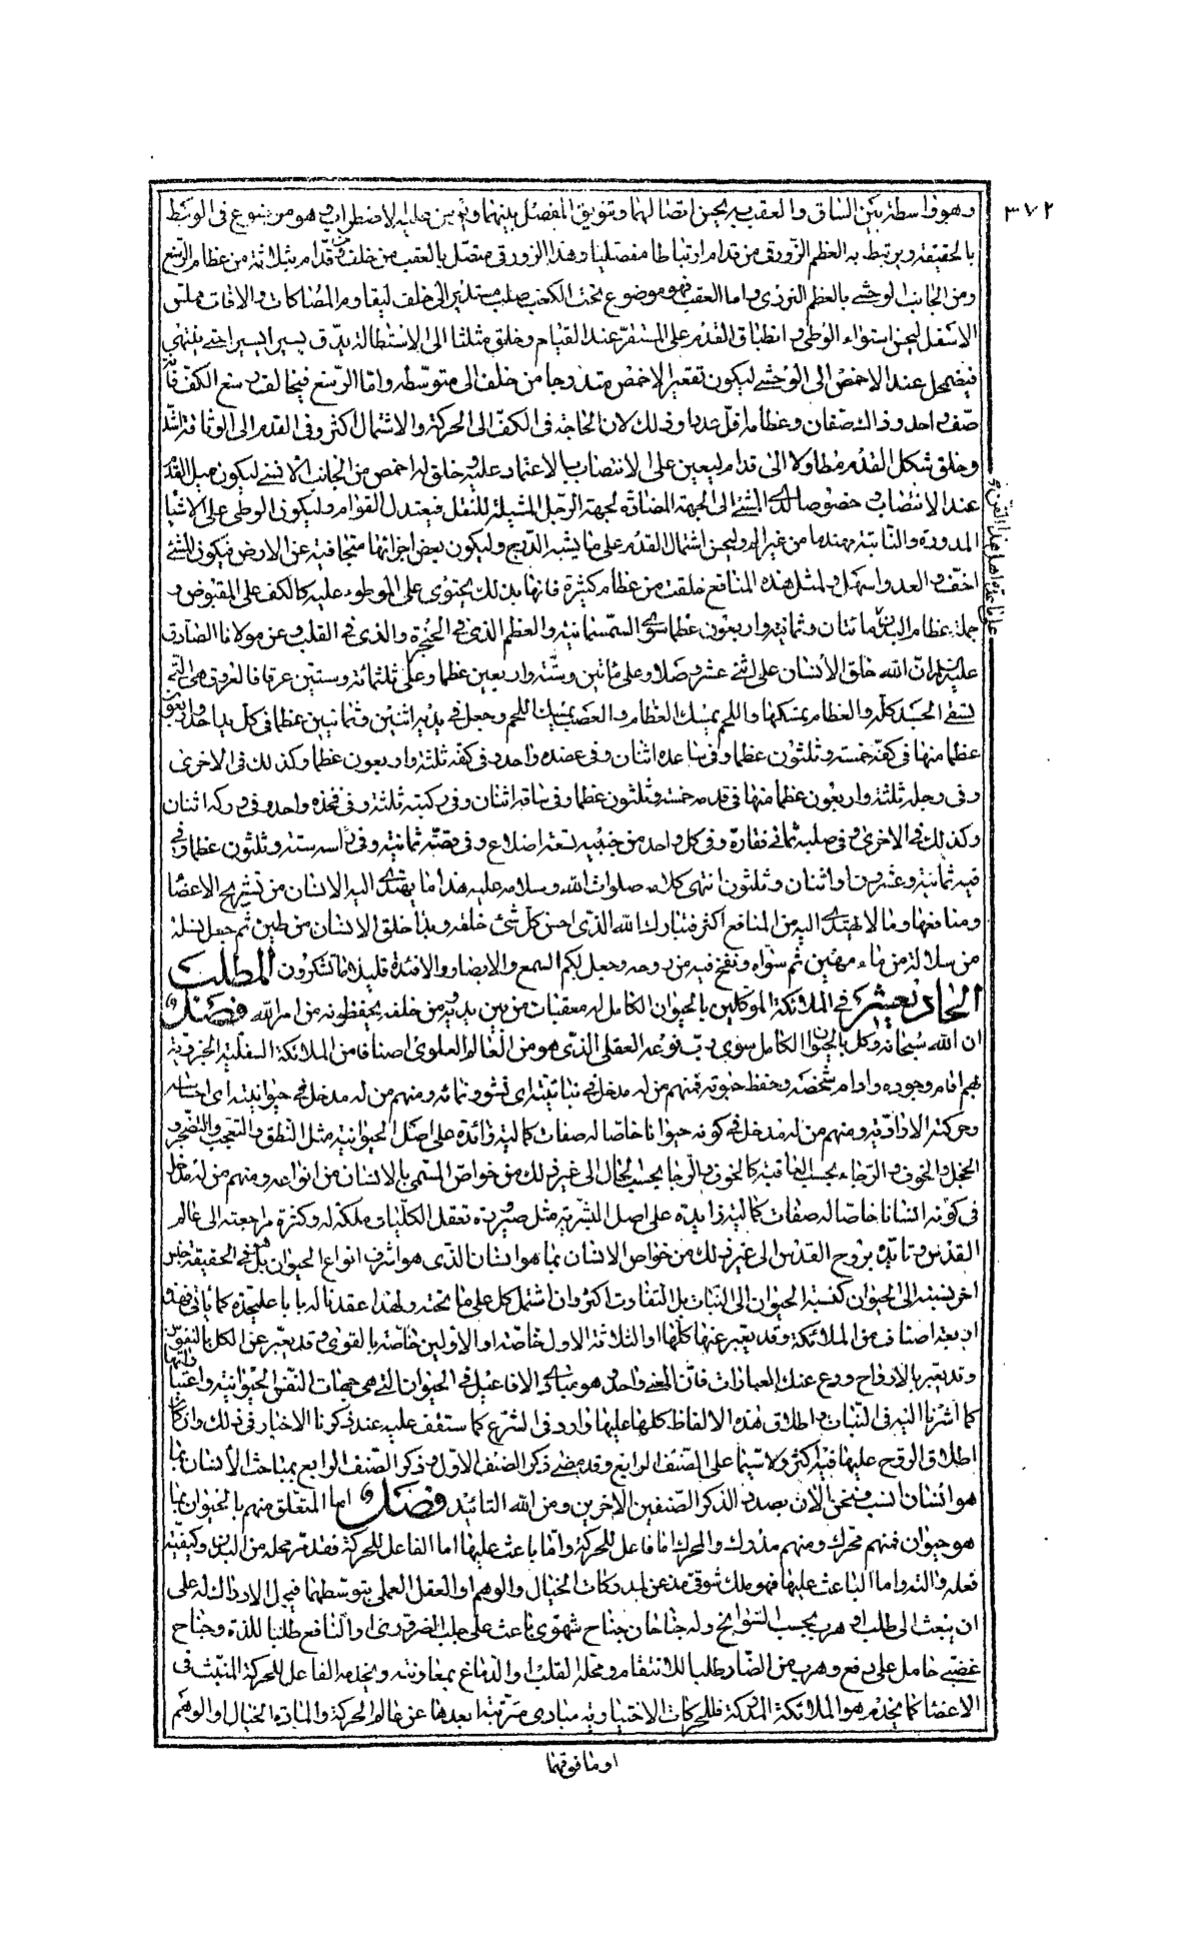 ٣٧٢
وهو واسطة بين الساق والعقب به يحسن اتصالهما وتوثق المفصل بينهما ويؤمن عليه الاضطراب وهو موضوع في الوسط
بالحقيقة ويرتبط به العظم الزورقي من قدام ارتباطا مفصليا وهذا الزورقي متصل بالعقب من خلف ومن قدام بثلاثة من عظام الرسغ
ومن الجانب الوحشي بالعظم النردي واما العقب فهو موضوع تحت الكعب صلب مستدير الى خلف ليقاوم المصاكات والافات مملس
الاسفل ليحسن استواء الوطي وانطباق القدم على المستقر عند القيام وخلق مثلثا الى الاستطالة يدق يسيرا يسيرا حتى ينتهي
فيضمحل عند الاخمص الى الوحشي ليكون تقعير الاخمص متدرجا من خلف الى متوسطه واما الرسغ فيخالف رسغ الكف فانه
صف واحد وذاك صفان وعظامه اقل عددا وذلك لان الحاجة في الكف الى الحركة والاشتمال اكثر وفي القدم الى الوثاقة اشد
وخلق شكل القدم مطاولا الى قدام ليعين على الانتصاب بالاعتماد عليه وخلق له اخمص من الجانب الانسي ليكون ميل القدم
عند الانتصاب وخصوصا لدى المشي الى الجهة المضادة لجهة الرجل المشيلة للنقل فيعتدل القوام وليكون الوطي على الاشيا
المدورة والناتية مهندما من غير الم وليحسن اشتمال القدم على ما يشبه الدرج وليكون بعض اجزائها متجافية عن الارض فيكون المشي
اخف والعدو اسهل ولمثل هذه المنافع خلقت من عظام كثيرة فانها بذلك يحتوي على الموطوء عليه كالكف على المقبوض و
جملة عظام البدن ماتتان وثمانية واربعون عظما سوى السمسمانية والعظم الذي في الحنجرة والذي في القلب وعن مولانا الصادق
عليه السلم ان الله خلق الانسان على اثني عشر وصلا وعلى مأتين وستة واربعين عظما وعلى ثلثمائة وستين عرقا فالعروق هي التي
تسقي الجسد كله والعظام يمسكها واللحم يمسك العظام والعصب يمسك اللحم وجعل في يديه اثنين وثمانين عظما في كل يد احد واربعون
عظما منها في كفه خمسة وثلثون عظما وفي ساعده اثنان وفي عضده واحد وفي كتفه ثلثة واربعون عظما وكذلك في الاخرى
وفي رجله ثلثة واربعون عظما منها في قدمه خمسة وثلثون عظما وفي ساقه اثنان وفي ركبته ثلثة وفي فخذه واحد وفي وركه اثنان
وكذلك في الاخرى وفي صلبه ثماني فقارة وفي كل واحد من جنبيه تسعة اضلاع وفي وقصته ثمانية وفي راسه ستة وثلثون عظما وفي
فيه ثمانية وعشرون او اثنان وثلثون انتهى كلامه صلوات الله وسلامه عليه هذا ما يهتدي اليه الانسان من تشريح الاعضا
ومنافعها وما لا يهتدي اليه من المنافع اكثر فتبارك الله الذي احسن كل شئ خلقه وبدا خلق الانسان من طين ثم جعل نسله
من سلالة من ماء مهين ثم سواه ونفخ فيه من روحه وجعل لكم السمع والابصار والافئدة قليلا ما تشكرون المطلب
الحادي عشر في الملائكة الموكلين بالحيوان الكامل له معقبات من بين يديه ومن خلفه يحفظونه من امر الله فصل
ان الله سبحانه وكل بالحيوان الكامل سوى رب نوعه العقلي الذي هو من العالم العلوي اصنافا من الملائكة السفلية الجزوية
بهم اقام وجوده وادام شخصه وحفظ حيوته فمنهم من له مدخل في نباتيته اي نشوه ونمائه ومنهم من له مدخل في حيوانيته اي احساسه
وحركته الارادية ومنهم من له مدخل في كونه حيوانا خاصا له صفات كمالية زائدة على اصل الحيوانية مثل النطق والتعجب والتضجر و
الخجل والخوف والرجاء بحسب العاقبة كالخوف والرجا بحسب الحال الى غير ذلك من خواص المسمى بالانسان من انواعه ومنهم من له مدخل
في كونه انسانا خاصا له صفات كمالية زايدة على اصل البشرية مثل صيرورة تعقل الكليات ملكة له وكثرة مراجعته الى عالم
القدس وتايده بروح القدس الى غير ذلك من خواص الانسان بما هو انسان الذي هو اشرف انواع الحيوان بل هو في الحقيقة جنس
اخر نسبته الى الحيوان كنسبة الحيوان الى النبات بل التفاوت اكثر وان اشتمل كل على ما تحته ولهذا عقدنا له بابا عليحدة كما ياتي فهذه
اربعة اصناف من الملائكة وقد يعبر عنها كلها او الثلاثة الاول خاصة او الاولين خاصة بالقوى وقد يعبر عن الكل بالنفوس
وقد يعبر بالارواح ودع عنك العبارات فان المعنى واحد وهو مبادى الافاعيل في الحيوان التي هي جهات النفس الحيوانية واعتباراتها
كما اشرنا اليه في النبات واطلاق هذه الالفاظ كلها عليها وارد في الشرع كما ستقف عليه عند ذكرنا الاخبار في ذلك وان كان
اطلاق الروح عليها فيه اكثر ولا سيما على الصنف الرابع وقد مضى ذكر الصنف الاول وذكر الصنف الرابع بمباحث الانسان بما
هو انسان انسب ونحن الان بصدد الذكر الصنفين الاخرين ومن الله التائيد فصل اما المتعلق منهم بالحيوان بما
هو حيوان فمنهم محرك ومنهم مدرك والمحرك اما فاعل للحركة واما باعث عليها اما الفاعل للحركة فقد مر محله من البدن وكيفية
فعله والته واما الباعث عليها فهو ملك شوقي مذعن لمدركات الخيال والوهم او العقل العملي بتوسطهما فيحمل الادراك له على
ان ينبعث الى طلب او هرب بحسب السوانح وله جناحان جناح شهوي باعث على جلب الضروري او النافع طلبا للذة وجناح
غضبي حامل على دفع وهرب من الضار طلبا للانتقام ومحله القلب او الدماغ بمعاونته ويخدمه الفاعل للحركة المنبث في
الاعضا كما يخدم هو الملائكة المدركة فللحركات الاختيارية مبادى مترتبة ابعدها عن عالم الحركة والمادة الخيال او الوهم
او ما فوقهما